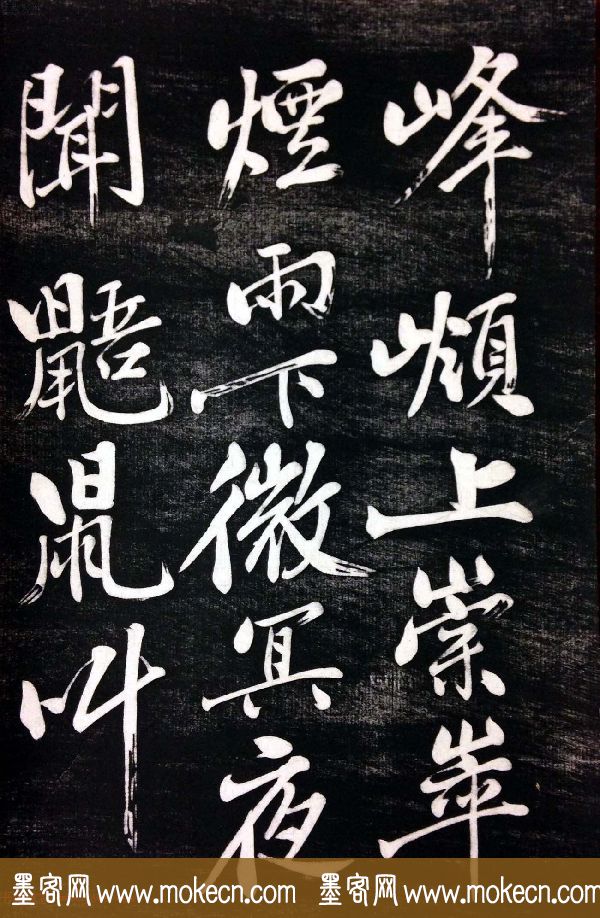 峰嶺上崇崒
煙雨下微冥夜
聞鼯鼠叫
墨客网 www.mokecn.com 墨客网 www.mokecn.com